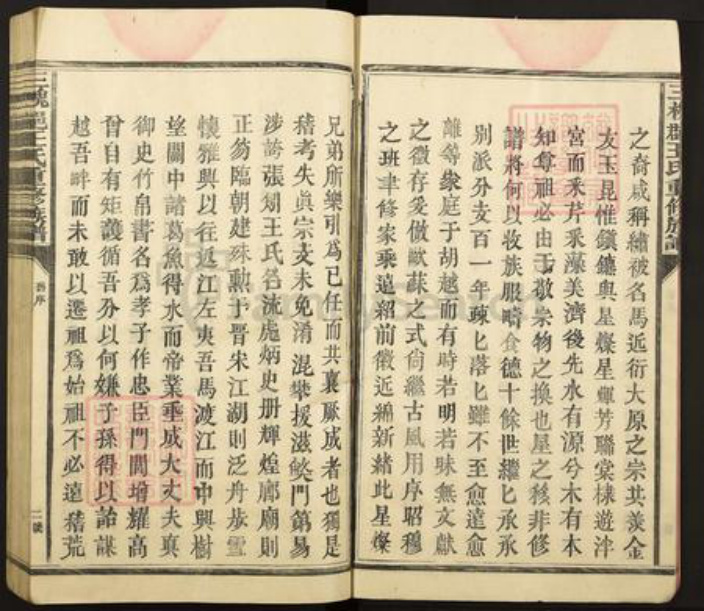 之裔咸稱繡被名馬近衍大原之宗共羨金
友玉昆惟鎮鑣與星燦星輝芳聯棠棣遊泮
宮而釆芹釆藻美濟後先水有源兮木有本
知尊祖必由于敬宗物之換也星之移非修
譜將何以收族服疇食德十餘世繼匕承承
別派分支百一年疎匕落匕雖不至愈遠愈
離等家庭于胡越而有時若明若昧無文獻
之徵存爰倣歐蘇之式尙繼古風用序昭穆
之班聿修家乘遠紹前徽近綿新緒此星燦
兄弟所樂引爲己任而共襄厥成者也獨是
稽考失眞宗支未免淆混攀援滋弊門第易
涉誇張刱王氏名流處炳史册輝煌廊廟則
正笏臨朝建殊勲于晋宋江湖則泛舟步雪
懷雅興以往返江左夷吾馬渡江而中興樹
望關中諸葛魚得水而帝業垂成大丈夫眞
御史竹帛書名爲孝子作忠臣門閭增耀高
曾自有矩蒦循吾分以何嫌子孫得以詒謀
越吾畔而未敢以遷祖爲始祖不必遠稽荒
三槐郡王氏重修族譜
三槐郡王氏重修族譜
舊序
二號